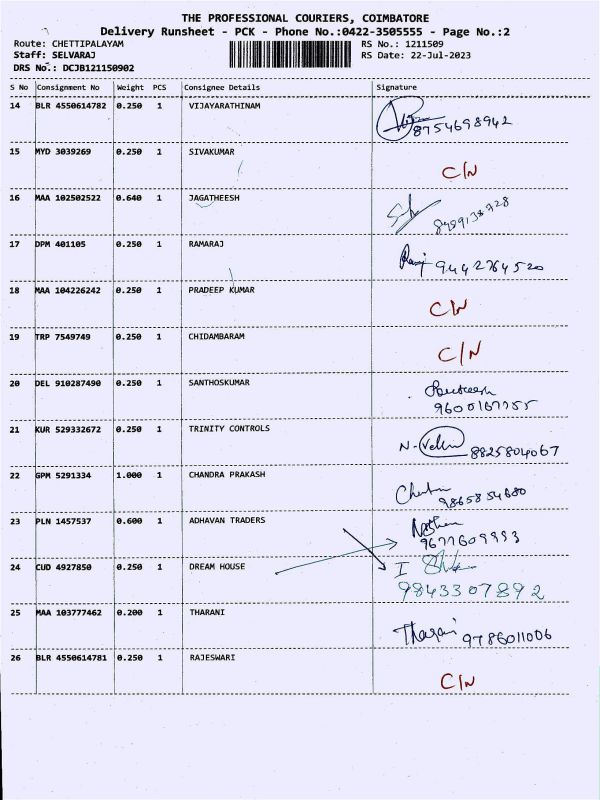 THE PROFESSIONAL COURIERS, COIMBATORE
Delivery Runsheet - PCK - Phone No.:0422-3505555 - Page No.:2
Route: CHETTIPALAYAM RS No.: 1211509
Staff: SELVARAJ RS Date: 22-Jul-2023
DRS No.: DCJB121150902
S No Consignment No Weight PCS Consignee Details Signature
14 BLR 4550614782 0.250 1 VIJAYARATHINAM
8754698942
15 MYD 3039269 0.250 1 SIVAKUMAR
C/N
16 MAA 102502522 0.640 1 JAGATHEESH
17 DPM 401105 0.250 1 RAMARAJ
9442764520
18 MAA 104226242 0.250 1 PRADEEP KUMAR
C/N
19 TRP 7549749 0.250 1 CHIDAMBARAM
C/N
20 DEL 910287490 0.250 1 SANTHOSKUMAR
21 KUR 529332672 0.250 1 TRINITY CONTROLS
8825804067
22 GPM 5291334 1.000 1 CHANDRA PRAKASH
9865854680
23 PLN 1457537 0.600 1 ADHAVAN TRADERS
9677609993
24 CUD 4927850 0.250 1 DREAM HOUSE
9843307892
25 MAA 103777462 0.200 1 THARANI
Tharani 9786011006
26 BLR 4550614781 0.250 1 RAJESWARI
C/N